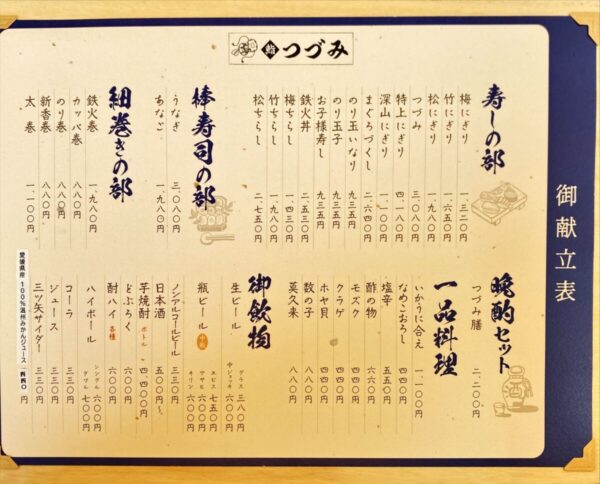 御献立表
鮨 つづみ
寿しの部
梅にぎり 一、三二〇円
竹にぎり 一、六五〇円
松にぎり 一、九八〇円
つづみ 三、〇八〇円
特上にぎり 四、一八〇円
深山にぎり 一、一〇〇円
まぐろづくし 二、六四〇円
のり玉いなり 九三五円
のり玉子 九三五円
お子様寿し 九三五円
鉄火丼 二、五三〇円
梅ちらし 一、四三〇円
竹ちらし 一、九八〇円
松ちらし 二、七五〇円
棒寿司の部
うなぎ 三、〇八〇円
あなご 一、九八〇円
細巻きの部
鉄火巻 一、九八〇円
カッパ巻 八八〇円
のり巻 八八〇円
新香巻 八八〇円
太巻 一、一〇〇円
晩酌セット
つづみ膳 二、二〇〇円
一品料理
いかうに合え 一、一〇〇円
なめこおろし 四四〇円
塩辛 五五〇円
酢の物 六六〇円
モズク 四四〇円
クラゲ 四四〇円
ホヤ貝 四四〇円
数の子 八八〇円
莫久来 八八〇円
御飲物
生ビール グラス 三八〇円
中ジョッキ 六〇〇円
瓶ビール 中瓶 エビス 七五〇円
アサヒ 六〇〇円
キリン 六〇〇円
ノンアルコールビール 三三〇円
日本酒 五〇〇円〜
芋焼酎 ボトル 四、四〇〇円
どぶろく 六〇〇円
酎ハイ 各種 六〇〇円
ハイボール シングル 六〇〇円
ダブル 七〇〇円
コーラ 三三〇円
ジュース 三三〇円
三ツ矢サイダー 三三〇円
愛媛県産 100%温州みかんジュース 四四〇円